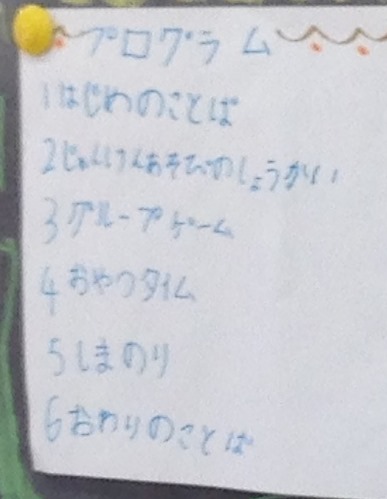 プログラム
1はじめのことば
2じゃんけんあそびのしょうかい
3グループゲーム
4おやつタイム
5しまのり
6おわりのことば